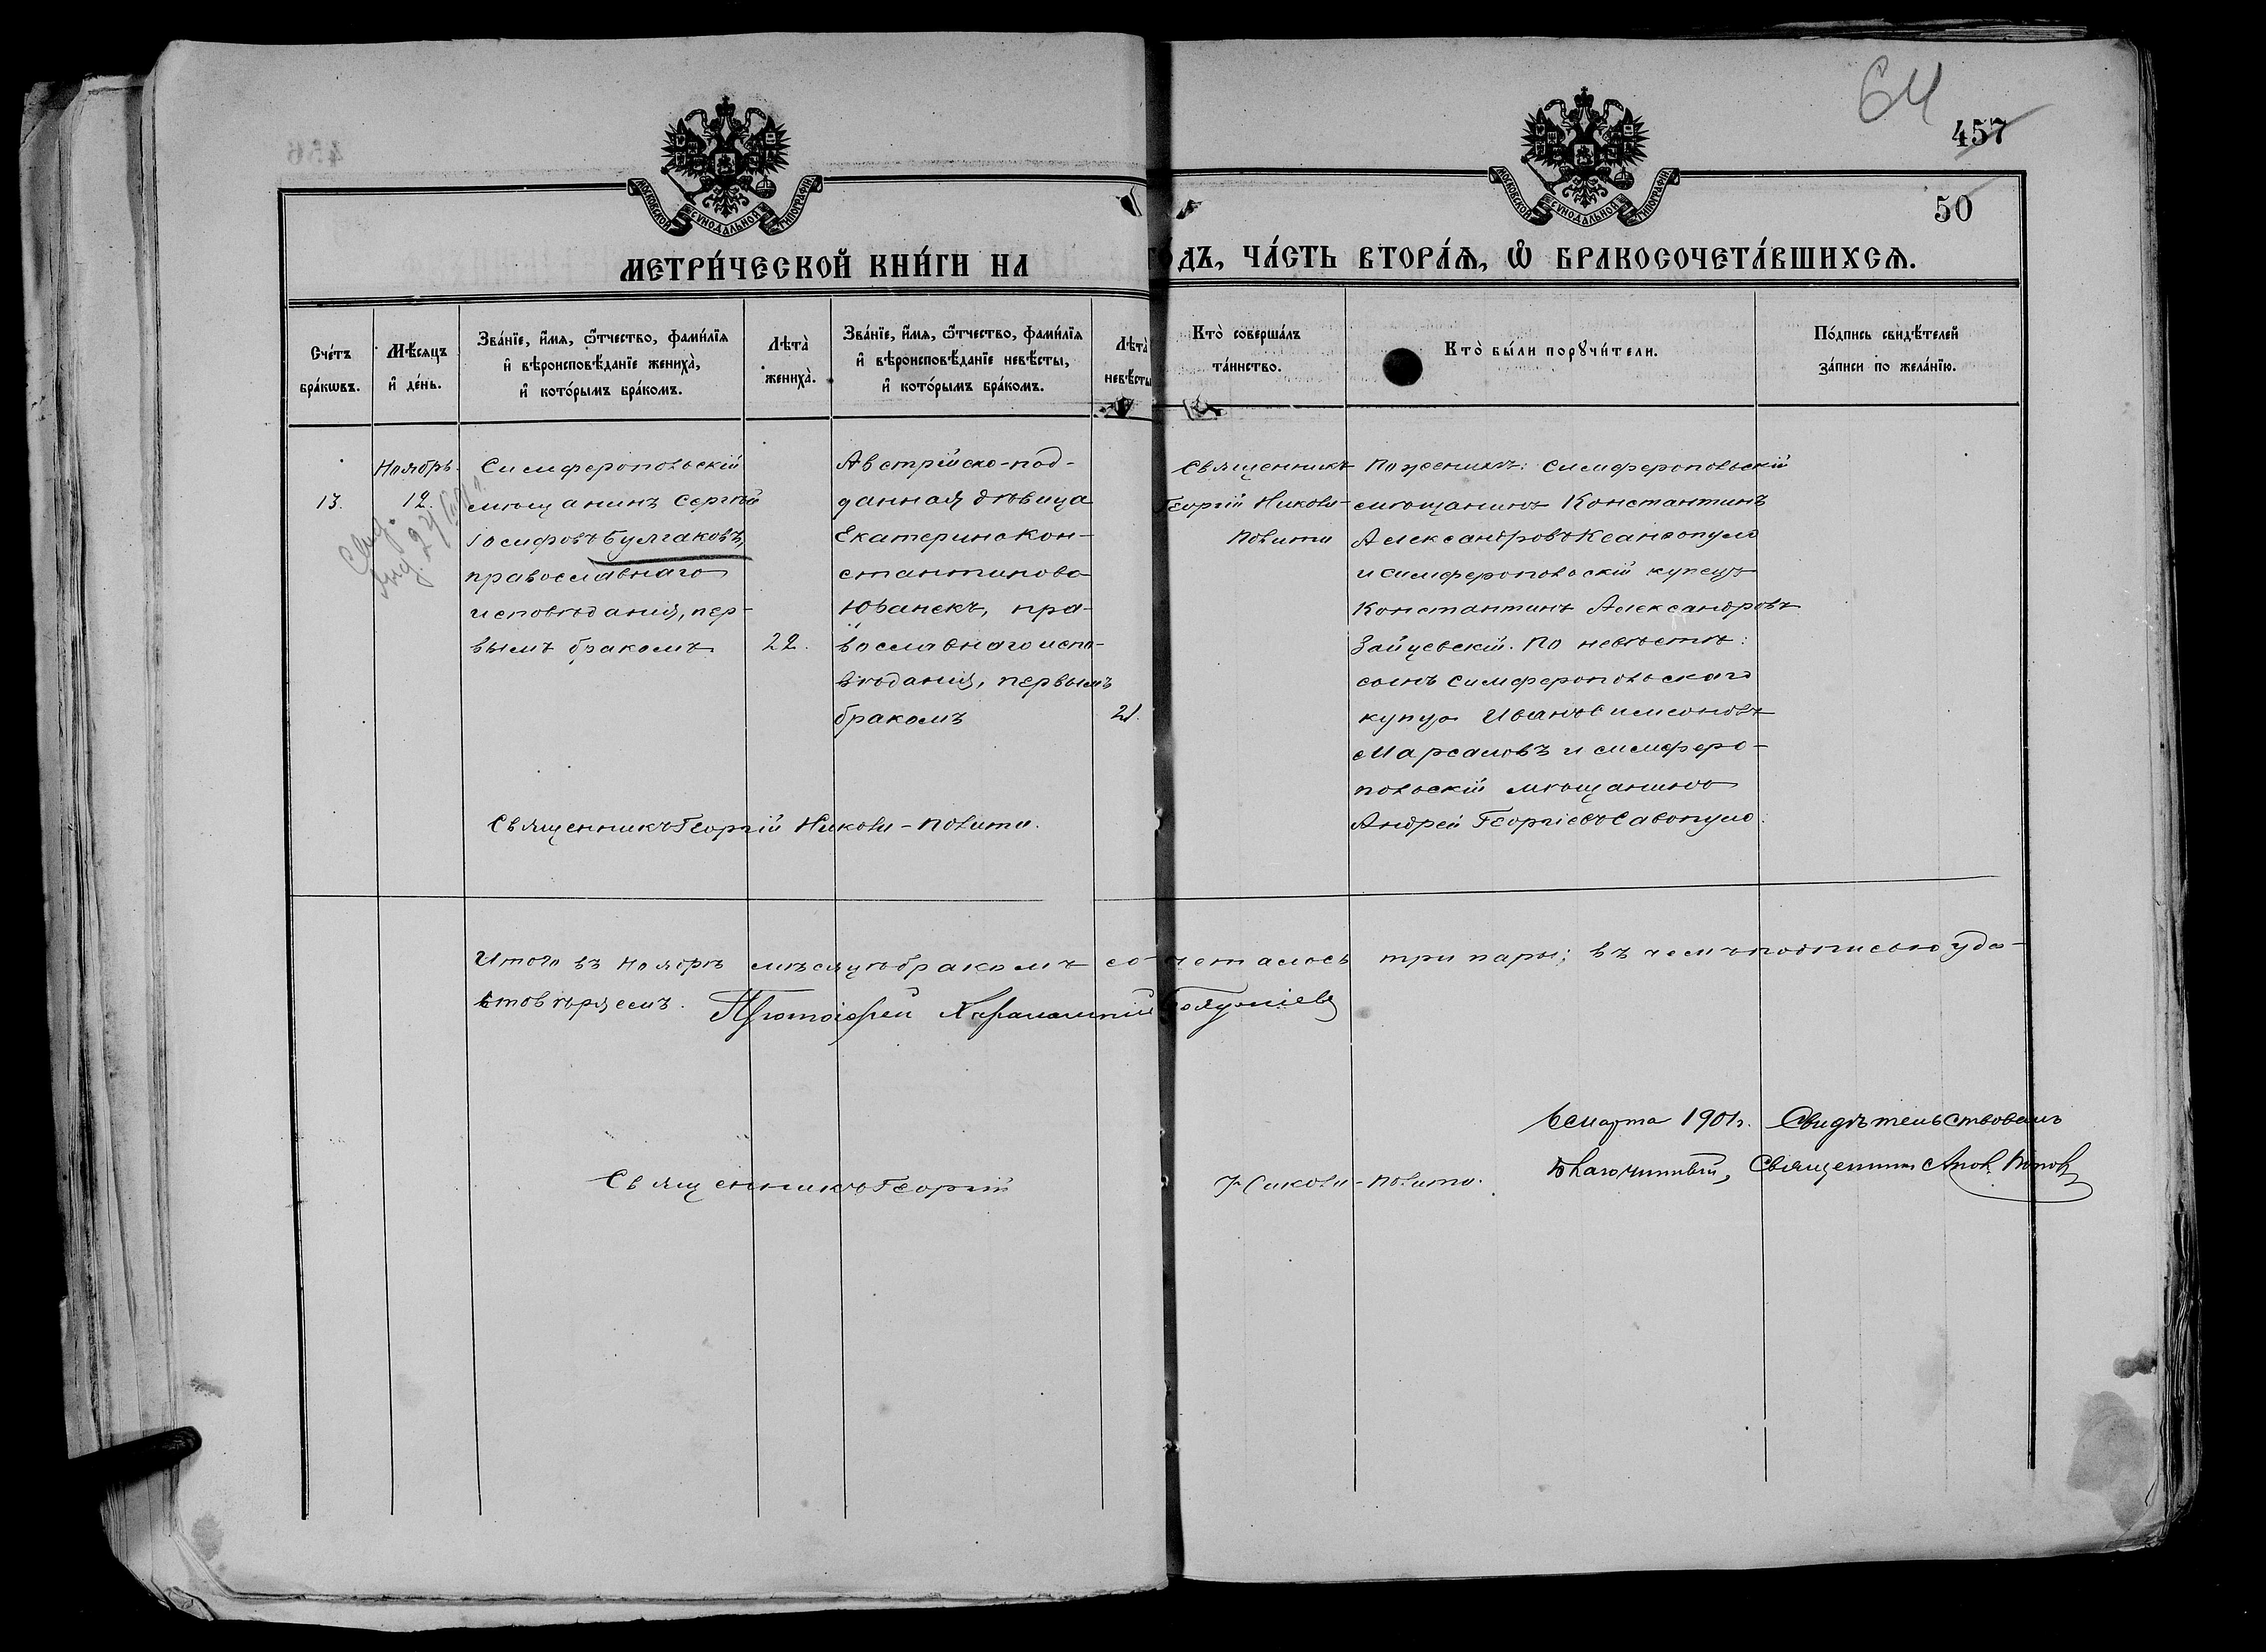 64
457
50
МОСКОВСКОЙ СѴНОДАЛЬНОЙ ТИПОГРАФІИ
МОСКОВСКОЙ СѴНОДАЛЬНОЙ ТИПОГРАФІИ
МЕТРИ́ЧЕСКОЙ КНИ́ГИ НА
ГО́ДЪ, ЧА́СТЬ ВТОРА́Ѧ, Ѽ БРАКОСОЧЕТА́ВШИХСѦ.
Сче́тъ бра́кѡвъ.
Мѣ́сяцъ и҆ де́нь.
Зва́нїе, и҆́мя, ѻ҆́тчество, фами́лїя
и҆ вѣроисповѣ́данїе жениха̀,
и҆ кото́рымъ бра́комъ.
Лѣта̀ жениха̀.
Зва́нїе, и҆́мя, ѻ҆́тчество, фами́лїя
и҆ вѣроисповѣ́данїе невѣ́сты,
и҆ кото́рымъ бра́комъ.
Лѣта̀ невѣ́сты
Кто̀ соверша́лъ
та́инство.
Кто̀ бы́ли порꙋчи́тели.
По́дпись свидѣ́телей
за́писи по жела́нїю.
13.
Ноябрь.
12.
Симферопольскій
мѣщанинъ Сергѣй
Іосифовъ Булгаковъ,
православнаго
исповѣданія, пер-
вымъ бракомъ
22.
Австрійско-под-
данная дѣвица
Екатерина Кон-
стантинова
Юранекъ, пра-
вославнаго испо-
вѣданія, первымъ
бракомъ
21.
Священникъ
Георгій Николи-
Полити
По женихѣ: симферопольскій
мѣщанинъ Константинъ
Александровъ Ксанфопуло
и симферопольскій купецъ
Константинъ Александровъ
Зайцевскій. По невѣстѣ:
сынъ симферопольскаго
купца Иванъ Симеоновъ
и симферо-
польскій мѣщанинъ
Андрей Георгіевъ Савопуло.
Священникъ Георгій Николи-Полити.
Итого въ ноябрѣ мѣсяцѣ бракомъ сочеталось три пары; въ чемъ подписью удо-
стовѣряемъ. Протоіерей
6 марта 1901 г. Свидѣтельствовалъ
Благочинный, Священникъ Попов
Священникъ Георгій Николи-Полити.